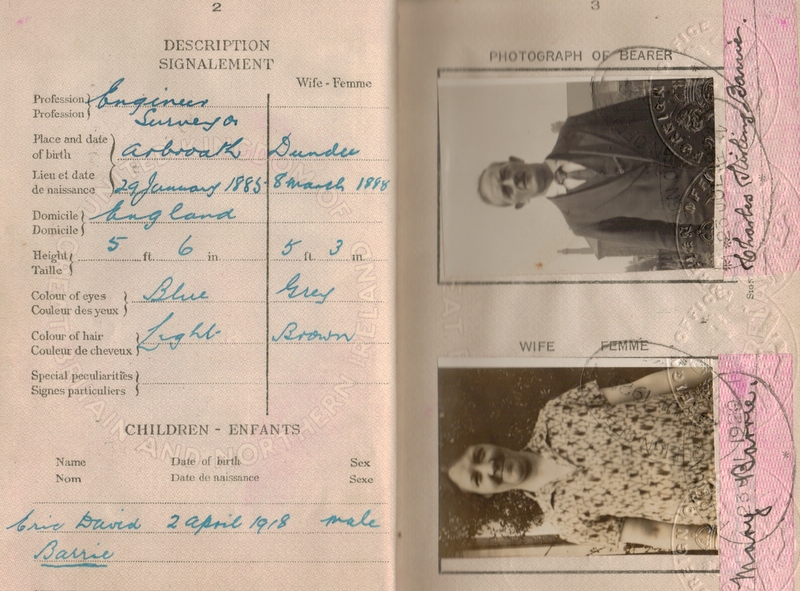 2
DESCRIPTION
SIGNALEMENT
Wife - Femme
Profession Engineer
Profession Surveyor
Place and date
of birth Arbroath Dundee
Lieu et date
de naissance 29 January 1885 8 March 1888
Domicile England
Domicile
Height 5 ft. 6 in. 5 ft. 3 in.
Taille
Colour of eyes Blue Grey
Couleur des yeux
Colour of hair Light Brown
Couleur de cheveux
Special peculiarities
Signes particuliers
CHILDREN - ENFANTS
Name Date of birth Sex
Nom Date de naissance Sexe
Eric David 2 April 1918 male
Barrie
3
PHOTOGRAPH OF BEARER
Charles Stirling Barrie.
WIFE FEMME
Mary Barrie.
FOREIGN OFFICE